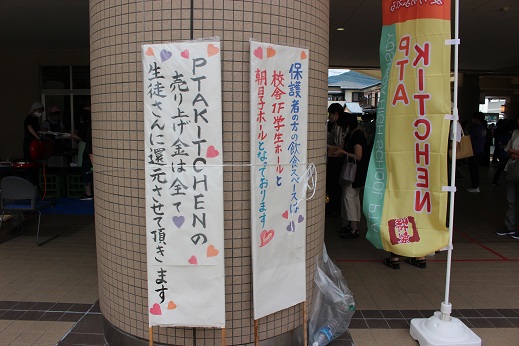 PTAKITCHENの
売り上げ金は全て
生徒さんに還元させて頂きます
保護者の方の飲食スペースは
校舎1F学生ホールと
朝日子ホールとなっております
PTA
KITCHEN